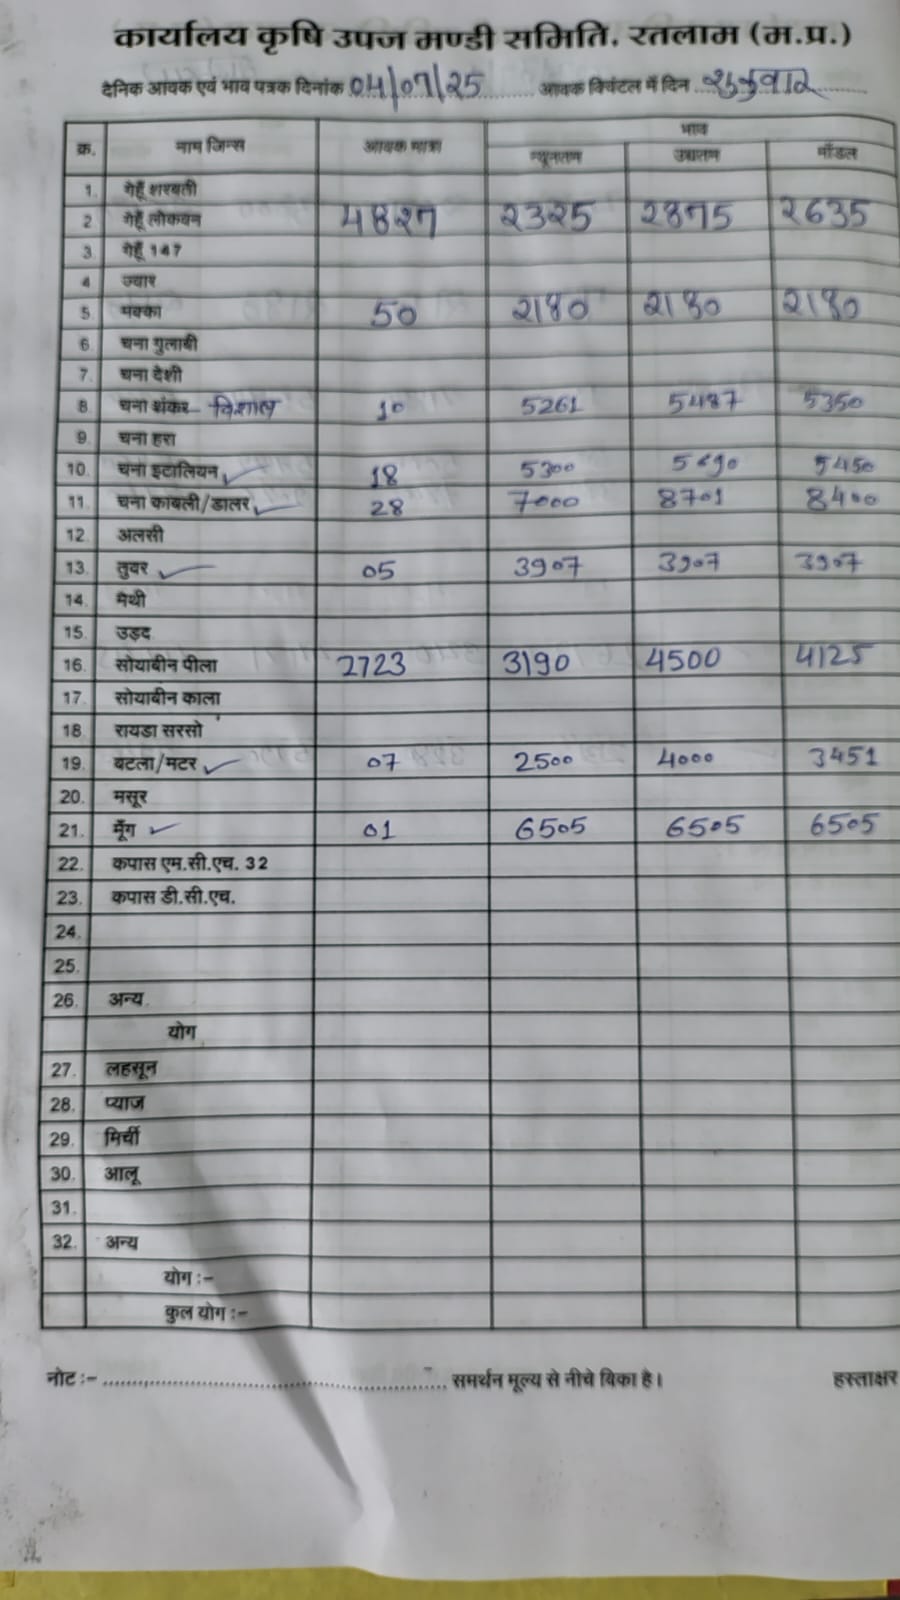 कार्यालय कृषि उपज मण्डी समिति, रतलाम (म.प्र.)
दैनिक आवक एवं भाव पत्रक दिनांक 04/07/25 आवक क्विंटल में दिन शुक्रवार
भाव
क्र. नाम जिन्स आवक मात्रा न्यूनतम उच्चतम मॉडल
1. गेहूँ शरबती
2 गेहूँ लोकवन 4827 2325 2875 2635
3. गेहूँ 147
4 ज्वार
5. मक्का 50 2180 2180 2180
6. चना गुलाबी
7. चना देशी
8. चना शंकर विशाल 10 5261 5487 5350
9. चना हरा
10. चना इटालियन 18 5300 5450
11. चना काबली/डालर 28 7000 8701 8400
12. अलसी
13. तुवर 05 3907 3907 3907
14. मैथी
15. उड़द
16. सोयाबीन पीला 2723 3190 4500 4125
17. सोयाबीन काला
18. रायडा सरसो
19. बटला/मटर 07 2500 4000 3451
20. मसूर
21. मूँग 01 6505 6505 6505
22. कपास एम.सी.एच. 32
23. कपास डी.सी.एच.
24.
25.
26. अन्य
योग
27. लहसून
28. प्याज
29. मिर्ची
30. आलू
31.
32. अन्य
योग :–
कुल योग :–
नोट :– .................................................... समर्थन मूल्य से नीचे बिका है। हस्ताक्षर